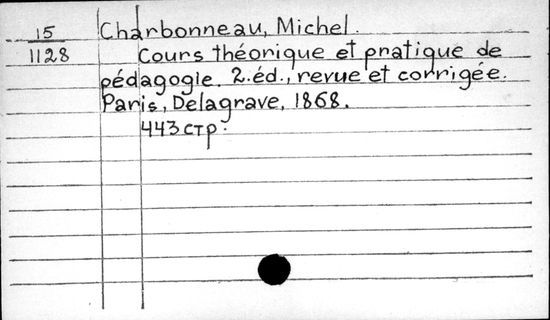 15 Charbonneau, Michel.
1128 Cours théorique et pratique de
pédagogie. 2.éd., revue et corrigée.
Paris, Delagrave, 1868.
443 стр.